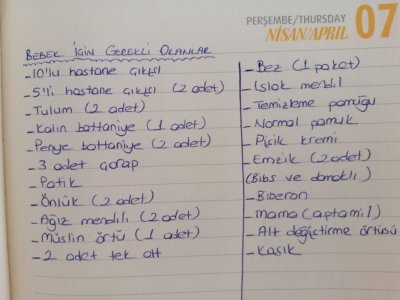 PERŞEMBE/THURSDAY
NİSAN/APRIL 07
BEBEK İÇİN GEREKLİ OLANLAR
- 10'lu hastane çıkışı
- 5'li hastane çıkışı (2 adet)
- Tulum (2 adet)
- Kalın battaniye (1 adet)
- Penye battaniye (2 adet)
- 3 adet çorap
- Patik
- Önlük (2 adet)
- Ağız mendili (2 adet)
- Müslin örtü (1 adet)
- 2 adet tek alt
- Bez (1 paket)
- Islak mendil
- Temizleme pamuğu
- Normal pamuk
- Pişik kremi
- Emzik (2 adet)
(Bibs ve damaklı)
- Biberon
- Mama (aptamil)
- Alt değiştirme örtüsü
- Kaşık